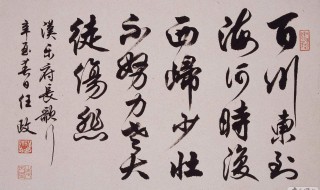 百川東到
海何時復
西歸少壯
不努力老大
徒傷悲
漢樂府長歌行
辛酉春日任政